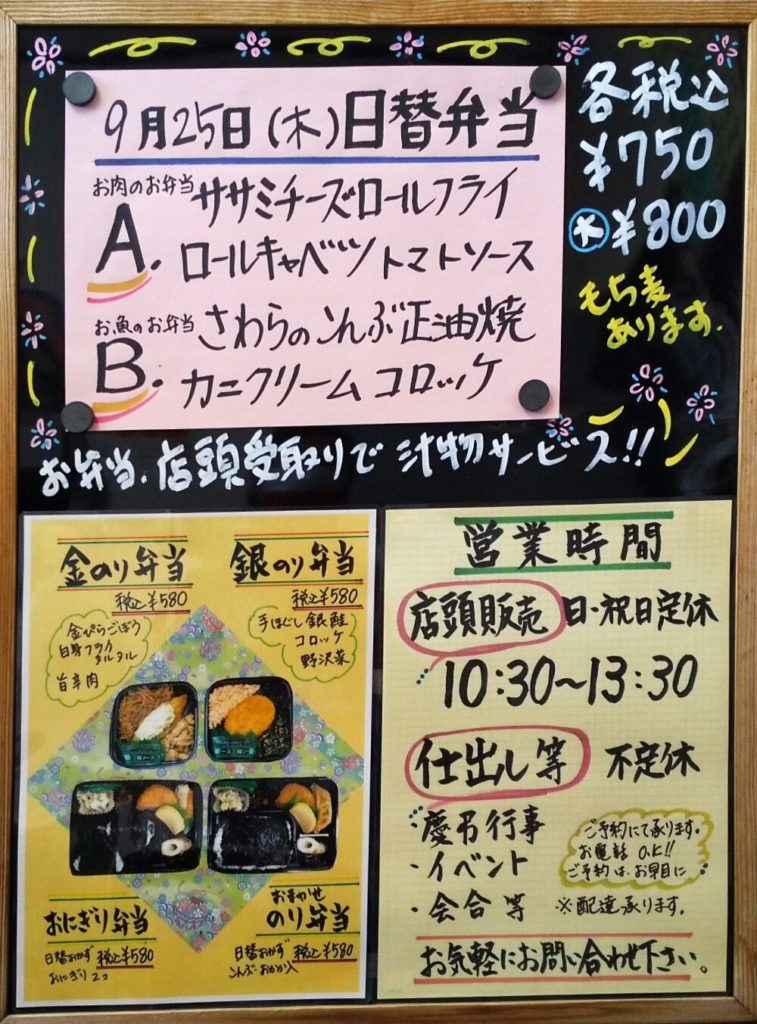 9月25日(木)日替弁当
お肉のお弁当
A.
ササミチーズロールフライ
ロールキャベツトマトソース
お魚のお弁当
B.
さわらのこんぶ正油焼
カニクリームコロッケ
各税込
¥750
大 ¥800
もち麦
あります.
お弁当、店頭受取りで 汁物サービス!!
金のり弁当
税込¥580
金ぴらごぼう
白身フライ
タルタル
旨辛肉
銀のり弁当
税込¥580
手ほぐし銀鮭
コロッケ
野沢菜
おにぎり弁当
日替おかず
おにぎり2コ
税込¥580
おまかせ
のり弁当
日替おかず
こんぶおかか入
税込¥580
営業時間
店頭販売 日・祝日定休
10:30~13:30
仕出し等 不定休
・慶弔行事
・イベント
・会合等
ご予約にて承ります。
お電話O.K!!
ご予約は、お早目に
※配達承ります。
お気軽にお問い合わせ下さい。